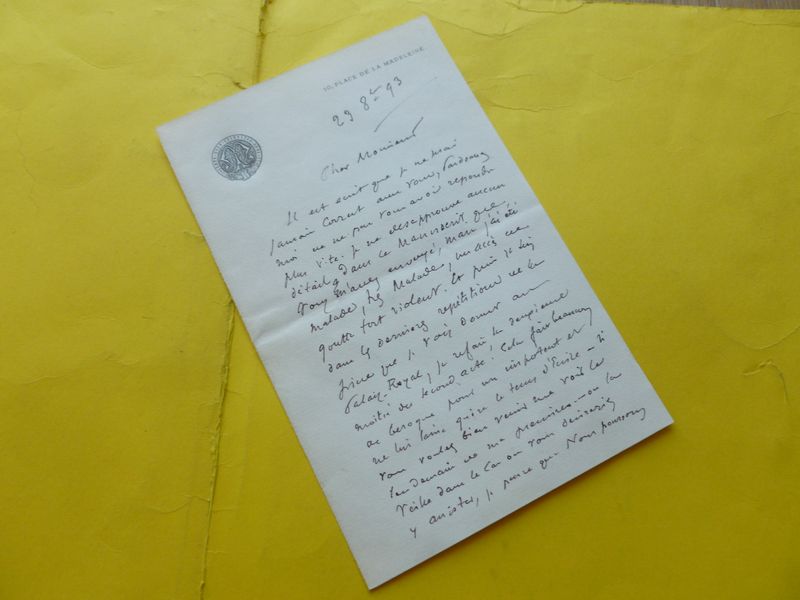 10, PLACE DE LA MADELEINE
29 8bre 93
Cher Monsieur
Il est écrit que je ne serai
jamais correct avec vous, Pardonnez
moi de ne pas vous avoir répondu
plus vite. Je ne désapprouve aucun
détail dans le Manuscrit que
vous m'avez envoyé, mais j'ai été
malade, très Malade, un accès de
goutte fort violent. Et puis je suis
dans les dernières répétitions de la
pièce que je vais donner au
Palais-Royal, je refais la deuxième
moitié du second acte. Cela fait beaucoup
de besogne pour un impotent et
ne lui laisse guère le temps d'écrire - Si
vous voulez bien venir me voir le
lendemain de ma première - ou la
veille dans le cas où vous désireriez
y assister, je pense que Nous pourrons